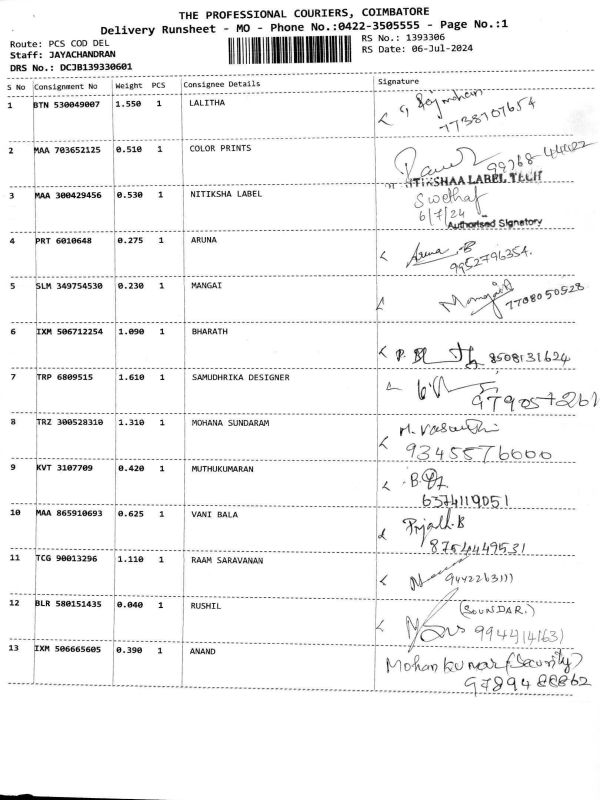 THE PROFESSIONAL COURIERS, COIMBATORE
Delivery Runsheet - MO - Phone No.:0422-3505555 - Page No.:1
Route: PCS COD DEL RS No.: 1393306
Staff: JAYACHANDRAN RS Date: 06-Jul-2024
DRS No.: DCJB139330601
S No Consignment No Weight PCS Consignee Details Signature
1 BTN 530049007 1.550 1 LALITHA
7738107654
2 MAA 703652125 0.510 1 COLOR PRINTS
99768-44022
NITIKSHAA LABEL TECH
3 MAA 300429456 0.530 1 NITIKSHA LABEL Swetha
6/7/24
Authorised Signatory
4 PRT 6010648 0.275 1 ARUNA Aruna B
9952796354.
5 SLM 349754530 0.230 1 MANGAI
7708050528
6 IXM 506712254 1.090 1 BHARATH
8508131624
7 TRP 6809515 1.610 1 SAMUDHRIKA DESIGNER
979057261
8 TRZ 300528310 1.310 1 MOHANA SUNDARAM M. Vasanthi
9345576000
9 KVT 3107709 0.420 1 MUTHUKUMARAN
6374119051
10 MAA 865910693 0.625 1 VANI BALA
8754449531
11 TCG 90013296 1.110 1 RAAM SARAVANAN
9442263111
12 BLR 580151435 0.040 1 RUSHIL (SOUNDAR.)
9944141631
13 IXM 506665605 0.390 1 ANAND Mohan kumar (Security)
9789488862